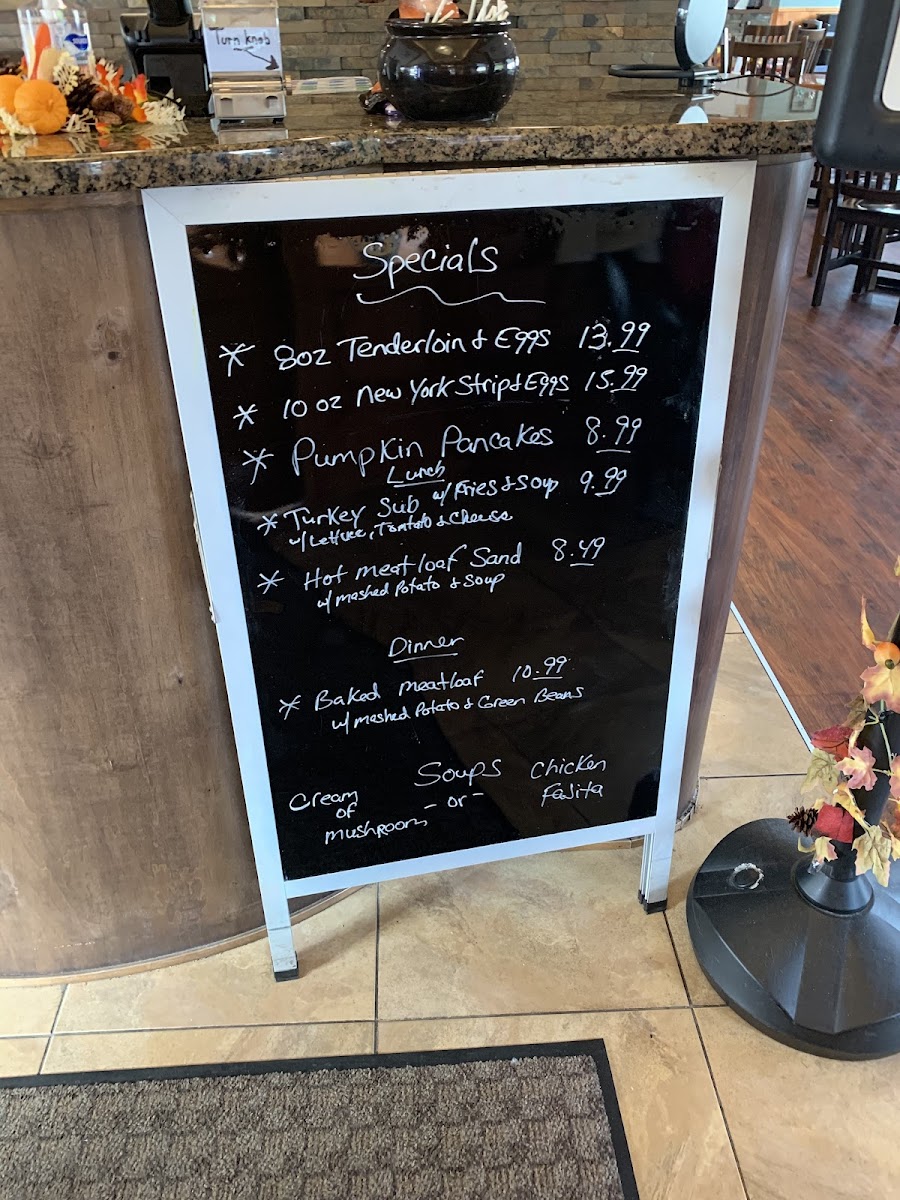 Turn knob
Specials
* 8oz Tenderloin & Eggs 13.99
* 10 oz New York Strip & Eggs 15.99
* Pumpkin Pancakes 8.99
Lunch
* Turkey Sub w/ Fries & Soup 9.99
w/ Lettuce, Tomato & Cheese
* Hot meatloaf Sand 8.49
w/ mashed Potato & Soup
Dinner
* Baked meatloaf 10.99
w/ mashed Potato & Green Beans
Soups
Cream of mushroom
- or -
Chicken Fajita